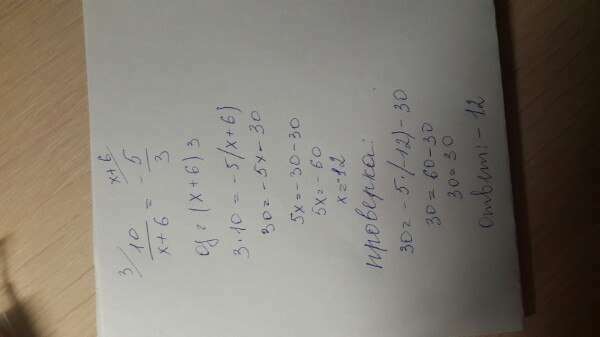 3/ 10/(x+6) = - x+6/ 5/3
оз: (x+6) 3
3·10 = -5(x+6)
30 = -5x-30
5x = -30-30
5x = -60
x = -12
проверка:
30 = -5·(-12)-30
30 = 60-30
30 = 30
ответ: -12